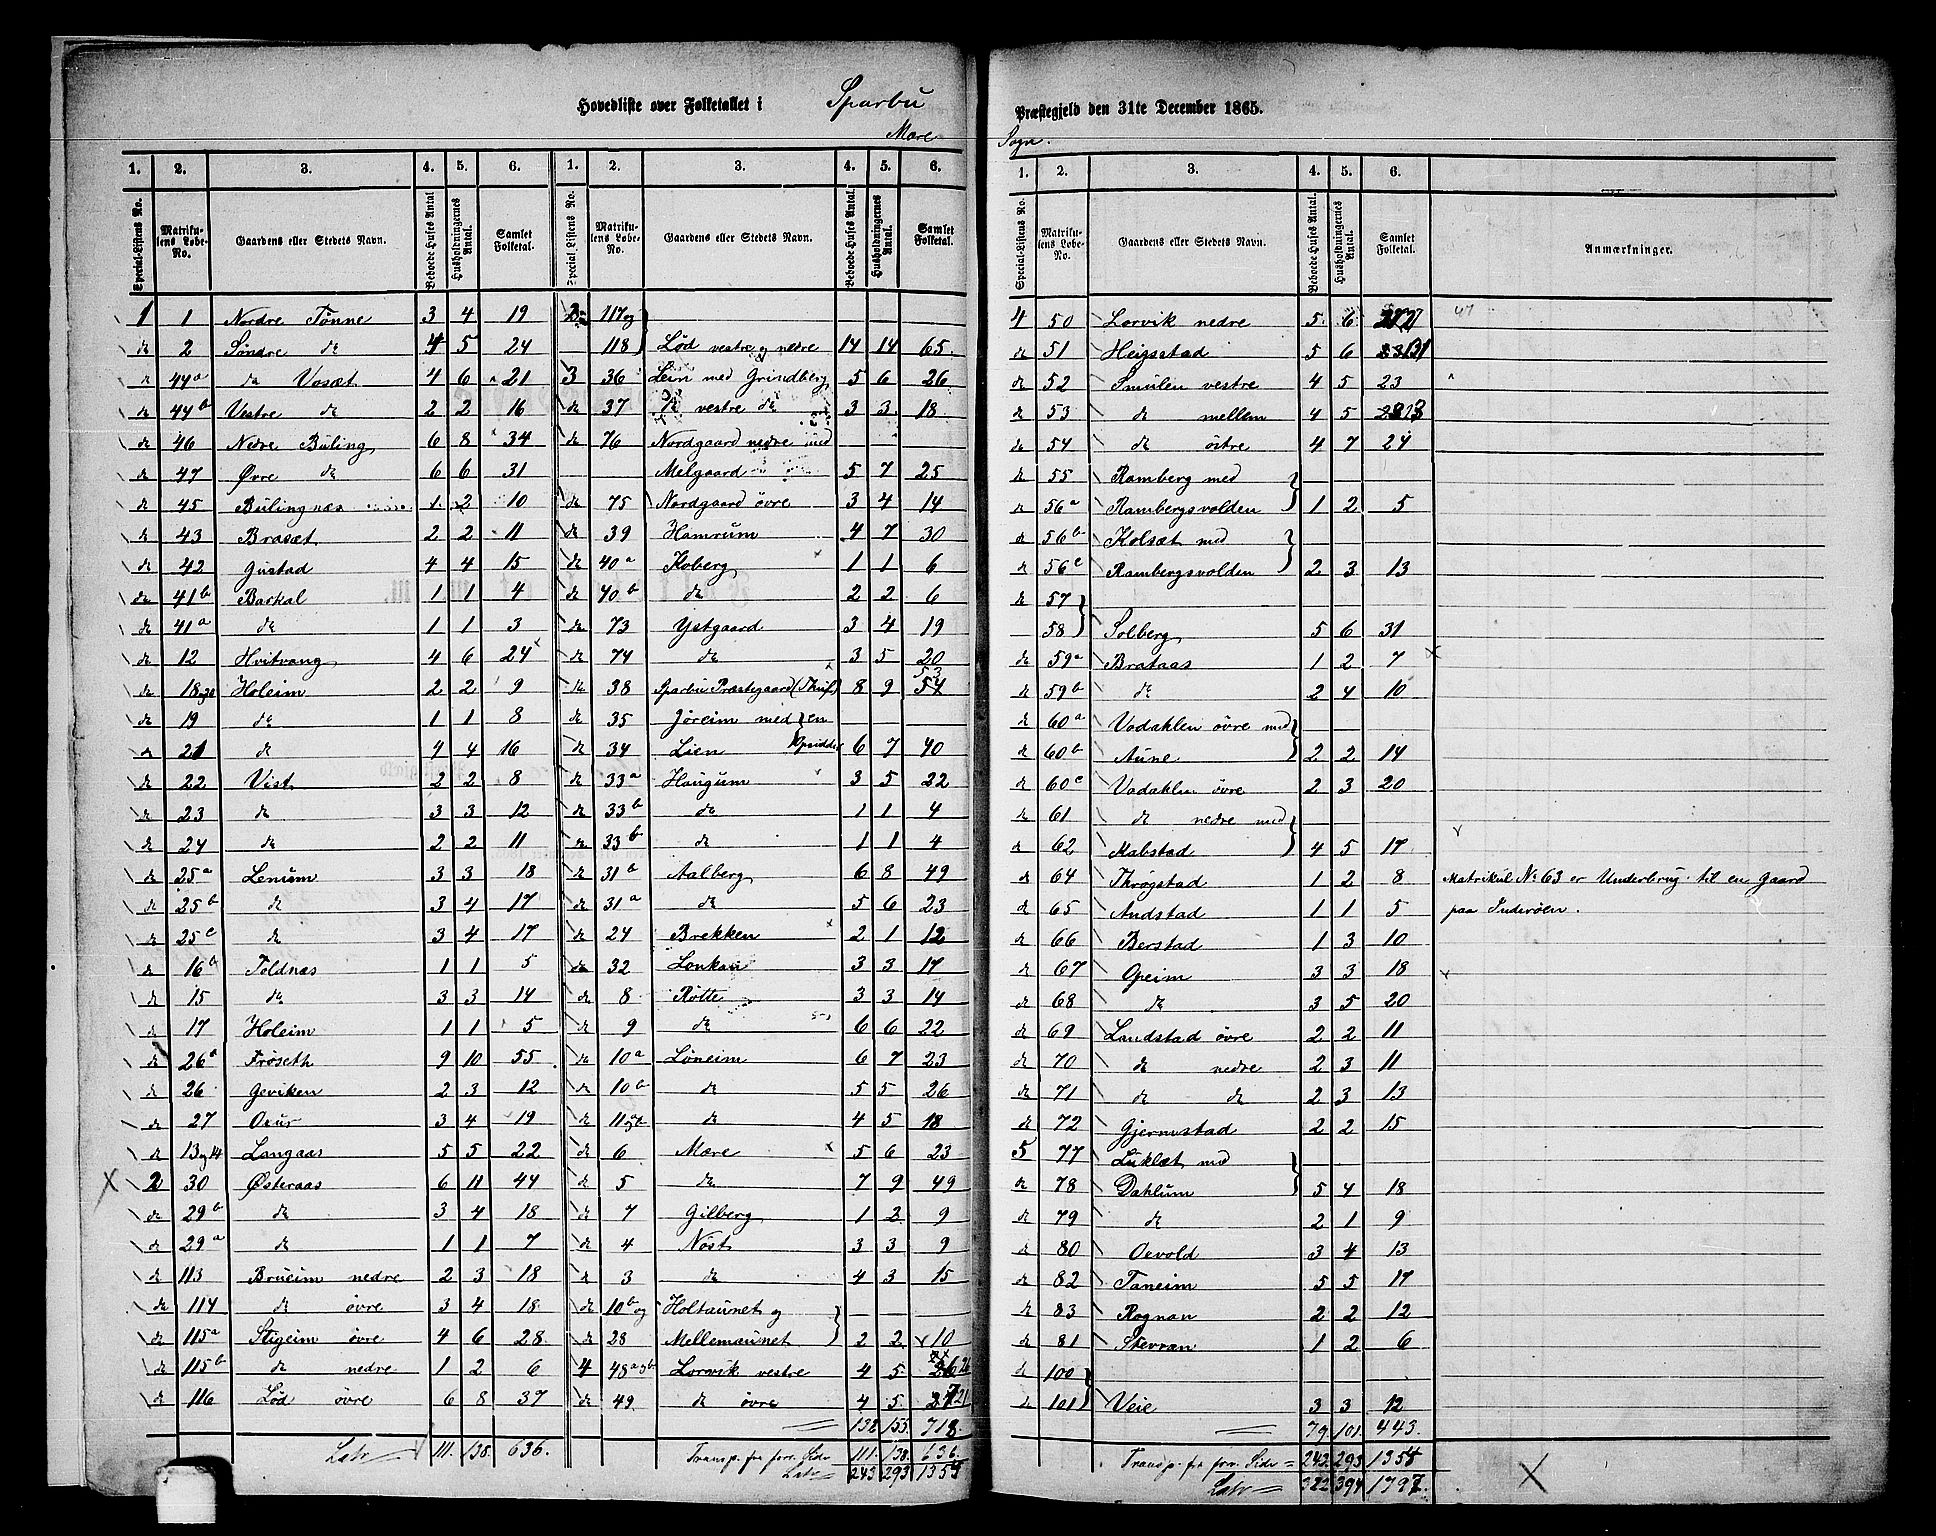 Hovedliste over Folketallet i Sparbu Præstegjeld den 31te December 1865.
Mære Sogn.
1. 2. 3. 4. 5. 6. 1. 2. 3. 4. 5. 6.
Special-Listens No. Matrikulens Løbe-No. Gaardens eller Stedets Navn. Beboede Huses Antal Husholdningernes Antal. Samlet Folketal. Special-Listens No. Matrikulens Løbe-No. Gaardens eller Stedets Navn. Beboede Huses Antal. Husholdningernes Antal. Samlet Folketal.
1 1 Nordre Tønne 3 4 19
do 2 Søndre do 4 5 24
do 44a do Vosæt 4 6 21
do 44b Vestre do 2 2 16
do 46 Nedre Buling 6 8 34
do 47 Øvre do 6 6 31
do 45 Bulingnæs 1 2 10
do 43 Brasæt 2 2 11
do 42 Gustad 4 4 15
do 41b Barkal 1 1 4
do 41a do 1 1 3
do 12 Hvitvang 4 6 24
do 18 Holeim 2 2 9
do 19 do 1 1 8
do 21 do 4 4 16
do 22 Vist 2 2 8
do 23 do 3 3 12
do 24 do 2 2 11
do 25a Lenum 3 3 18
do 25b do 3 4 17
do 25c do 3 4 17
do 16b Foldnæs 1 1 5
do 15 do 3 3 14
do 17 Holeim 1 1 5
do 26a Frøseth 9 10 55
do 26 Geviken 2 3 12
do 27 Oxur 3 4 19
do 13 og 14 Langaas 5 5 22
2 30 Østeraas 6 11 44
do 29b do 3 4 18
do 29a do 1 1 7
do 113 Brueim nedre 2 3 18
do 114 do øvre 3 4 18
do 115a Stigeim øvre 4 6 28
do 115b do nedre 1 2 6
do 116 Lød øvre 6 8 37
Latr 111. 138. 636.
2 117 og
118 Lød vestre og nedre 14 14 65
3 36 Lein med Grindberg 5 6 26
do 37 do vestre do 3 3 18
do 76 Nordgaard nedre med
Melgaard 5 7 25
do 75 Nordgaard øvre 3 4 14
do 39 Hamrum 4 7 30
do 40a Koberg 1 1 6
do 40b do 2 2 6
do 73 Ystgaard 3 4 19
do 74 do 3 5 20
do 38 Sparbu Præstegaard 8 9 53
do 35 Jøreim med en
do 34 Lien Opsidder 6 7 40
do 33a Haugum 3 5 22
do 33b do 1 1 4
do 33b do 1 1 4
do 31b Aalberg 6 8 49
do 31a do 5 6 23
do 24 Brekken 2 1 12
do 32 Lonkan 3 3 17
do 8 Rotte 3 3 14
do 9 do 6 6 22
do 10a Løneim 6 7 23
do 10b do 5 5 26
do 11 do 4 5 18
do 6 Mære 5 6 23
do 5 do 7 9 49
do 7 Gilberg 1 2 9
do 4 Nøst 3 3 9
do 3 do 4 3 15
do 10b og Holtaunet og
do 28 Mellemaunet 2 2 10
4 48a og b Lorvik vestre 4 5 26
do 49 do øvre 4 5 21
132 155 718.
Transp. fra forr. Side 111. 138. 636.
Latr 243 293 1354
1. 2. 3. 4. 5. 6.
Special-Listens No. Matrikulens Løbe-No. Gaardens eller Stedets Navn. Beboede Huses Antal. Husholdningernes Antal. Samlet Folketal. Anmærkninger.
4 50 Lorvik nedre 5 6 27
do 51 Heigsstad 5 6 31
do 52 Smulen vestre 4 5 23
do 53 do mellem 4 5 23
do 54 do østre 4 7 24
do 55 Ramberg med
do 56a Rambergsvolden 1 2 5
do 56b Kolsæt med
do 56c Rambergsvolden 2 3 13
do 57
58 Solberg 5 6 31
do 59a Brataas 1 2 7
do 59b do 2 4 10
do 60a Vodahlen øvre med
do 60b Aune 2 2 14
do 60c Vodahlen øvre 2 3 20
do 61 do nedre med
do 62 Mabstad 4 5 17
do 64 Thrøgstad 1 2 8 Matrikul No 63 er Underbrug til en Gaard
do 65 Andstad 1 1 5 paa Inderøen.
do 66 Berstad 1 3 10
do 67 Opeim 3 3 18
do 68 do 3 5 20
do 69 Landstad øvre 2 2 11
do 70 do nedre 2 3 11
do 71 do do 2 3 13
do 72 Gjermstad 2 2 15
5 77 Luklæt med
do 78 Dahlum 5 4 18
do 79 do 2 1 9
do 80 Oxvold 3 4 13
do 82 Taneim 5 5 17
do 83 Rognan 2 2 12
do 81 Stevran 1 2 6
do 100
do 101 Veie 3 3 12
79. 101. 443.
Transp. fr. forr. Side = 243. 293 1354
Latr = 322 394 1797.